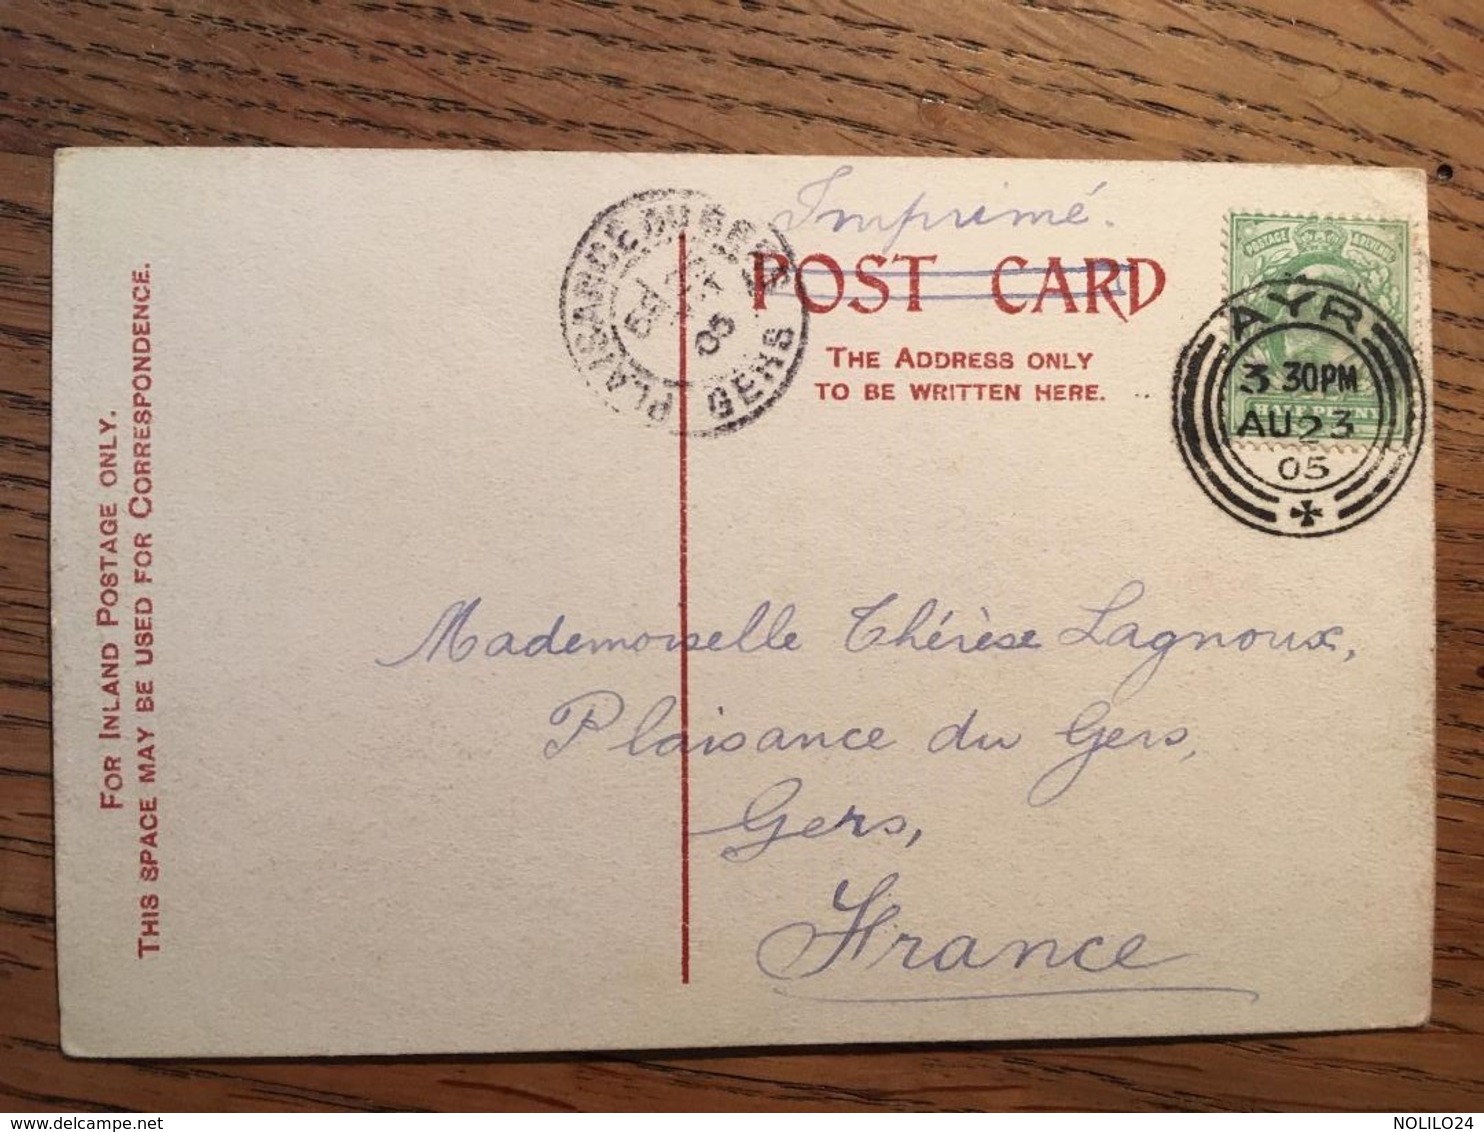 Imprimé.
POST CARD
THE ADDRESS ONLY
TO BE WRITTEN HERE.
FOR INLAND POSTAGE ONLY.
THIS SPACE MAY BE USED FOR CORRESPONDENCE.
PLAISANCE DU GERS
05
GERS
POSTAGE
AYR
3 30PM
AU 23
05
HALFPENNY
Mademoiselle Thérèse Lagnoux,
Plaisance du Gers,
Gers,
France
NOLILO24